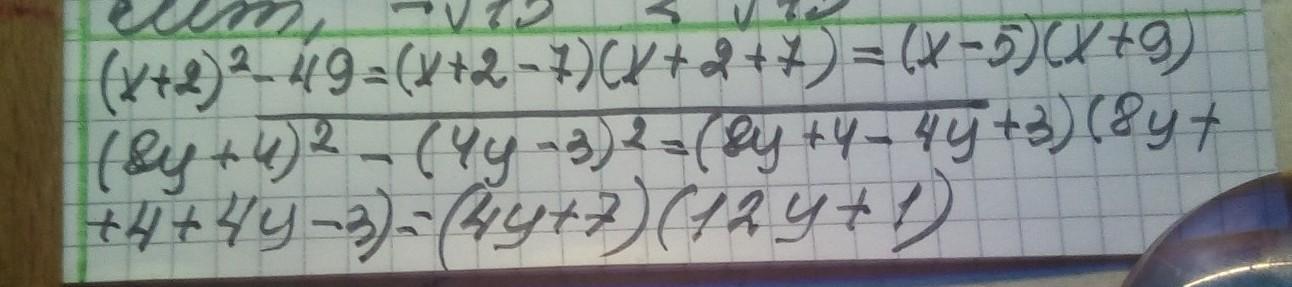 (x+2)²-49=(x+2-7)(x+2+7)=(x-5)(x+9)
(8y+4)²-(4y-3)²=(8y+4-4y+3)(8y+
+4+4y-3)=(4y+7)(12y+1)